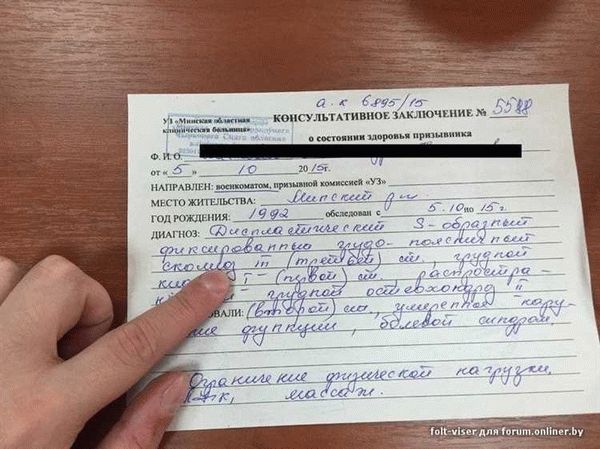 а.к 6895/15
УЗ «Минская областная клиническая больница»
КОНСУЛЬТАТИВНОЕ ЗАКЛЮЧЕНИЕ № 5588
о состоянии здоровья призывника
Ф. И. О.
от « 5 » 10 2015г.
НАПРАВЛЕН: военкоматом, призывной комиссией «УЗ»
МЕСТО ЖИТЕЛЬСТВА: Минский р-н
ГОД РОЖДЕНИЯ: 1992 обследован с 5.10 по 15 г.
ДИАГНОЗ: Диспластический S-образный
фиксированный грудо-поясничный
сколиоз III (третьей) ст., грудной
I - (первой) ст. распростра-
грудной остеохондроз II
ОВАЛИ: (второй) ст., умеренное нару-
ние функции, болевой синдром,
Ограничение физической нагрузки,
массаж.
folt-viser для forum.onliner.by